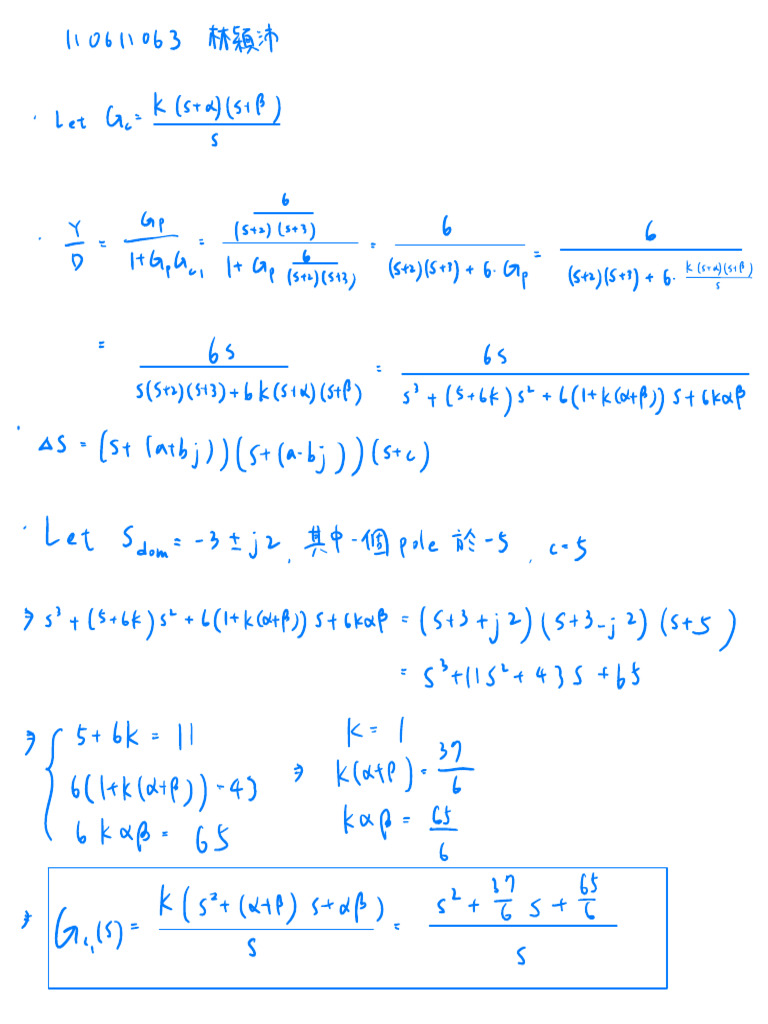 110611063 林穎沛
· Let G_c = \frac{k(s+α)(s+β)}{s}
· \frac{Y}{D} = \frac{G_p}{1+G_pG_{c1}} = \frac{\frac{6}{(s+2)(s+3)}}{1+G_p\frac{6}{(s+2)(s+3)}} = \frac{6}{(s+2)(s+3)+6·G_p} = \frac{6}{(s+2)(s+3)+6·\frac{k(s+α)(s+β)}{s}}
= \frac{6s}{s(s+2)(s+3)+6k(s+α)(s+β)} = \frac{6s}{s^3+(5+6k)s^2+6(1+k(α+β))s+6kαβ}
· Δs = (s+(a+bj))(s+(a-bj))(s+c)
· Let S_{dom} = -3±j2, 其中一個pole 於-5, c=5
⇒ s^3+(5+6k)s^2+6(1+k(α+β))s+6kαβ = (s+3+j2)(s+3-j2)(s+5)
= s^3+11s^2+43s+65
⇒ { 5+6k = 11 k = 1
6(1+k(α+β)) = 43 ⇒ k(α+β) = \frac{37}{6}
6kαβ = 65 kαβ = \frac{65}{6}
⇒ G_{c1}(s) = \frac{k(s^2+(α+β)s+αβ)}{s} = \frac{s^2+\frac{37}{6}s+\frac{65}{6}}{s}